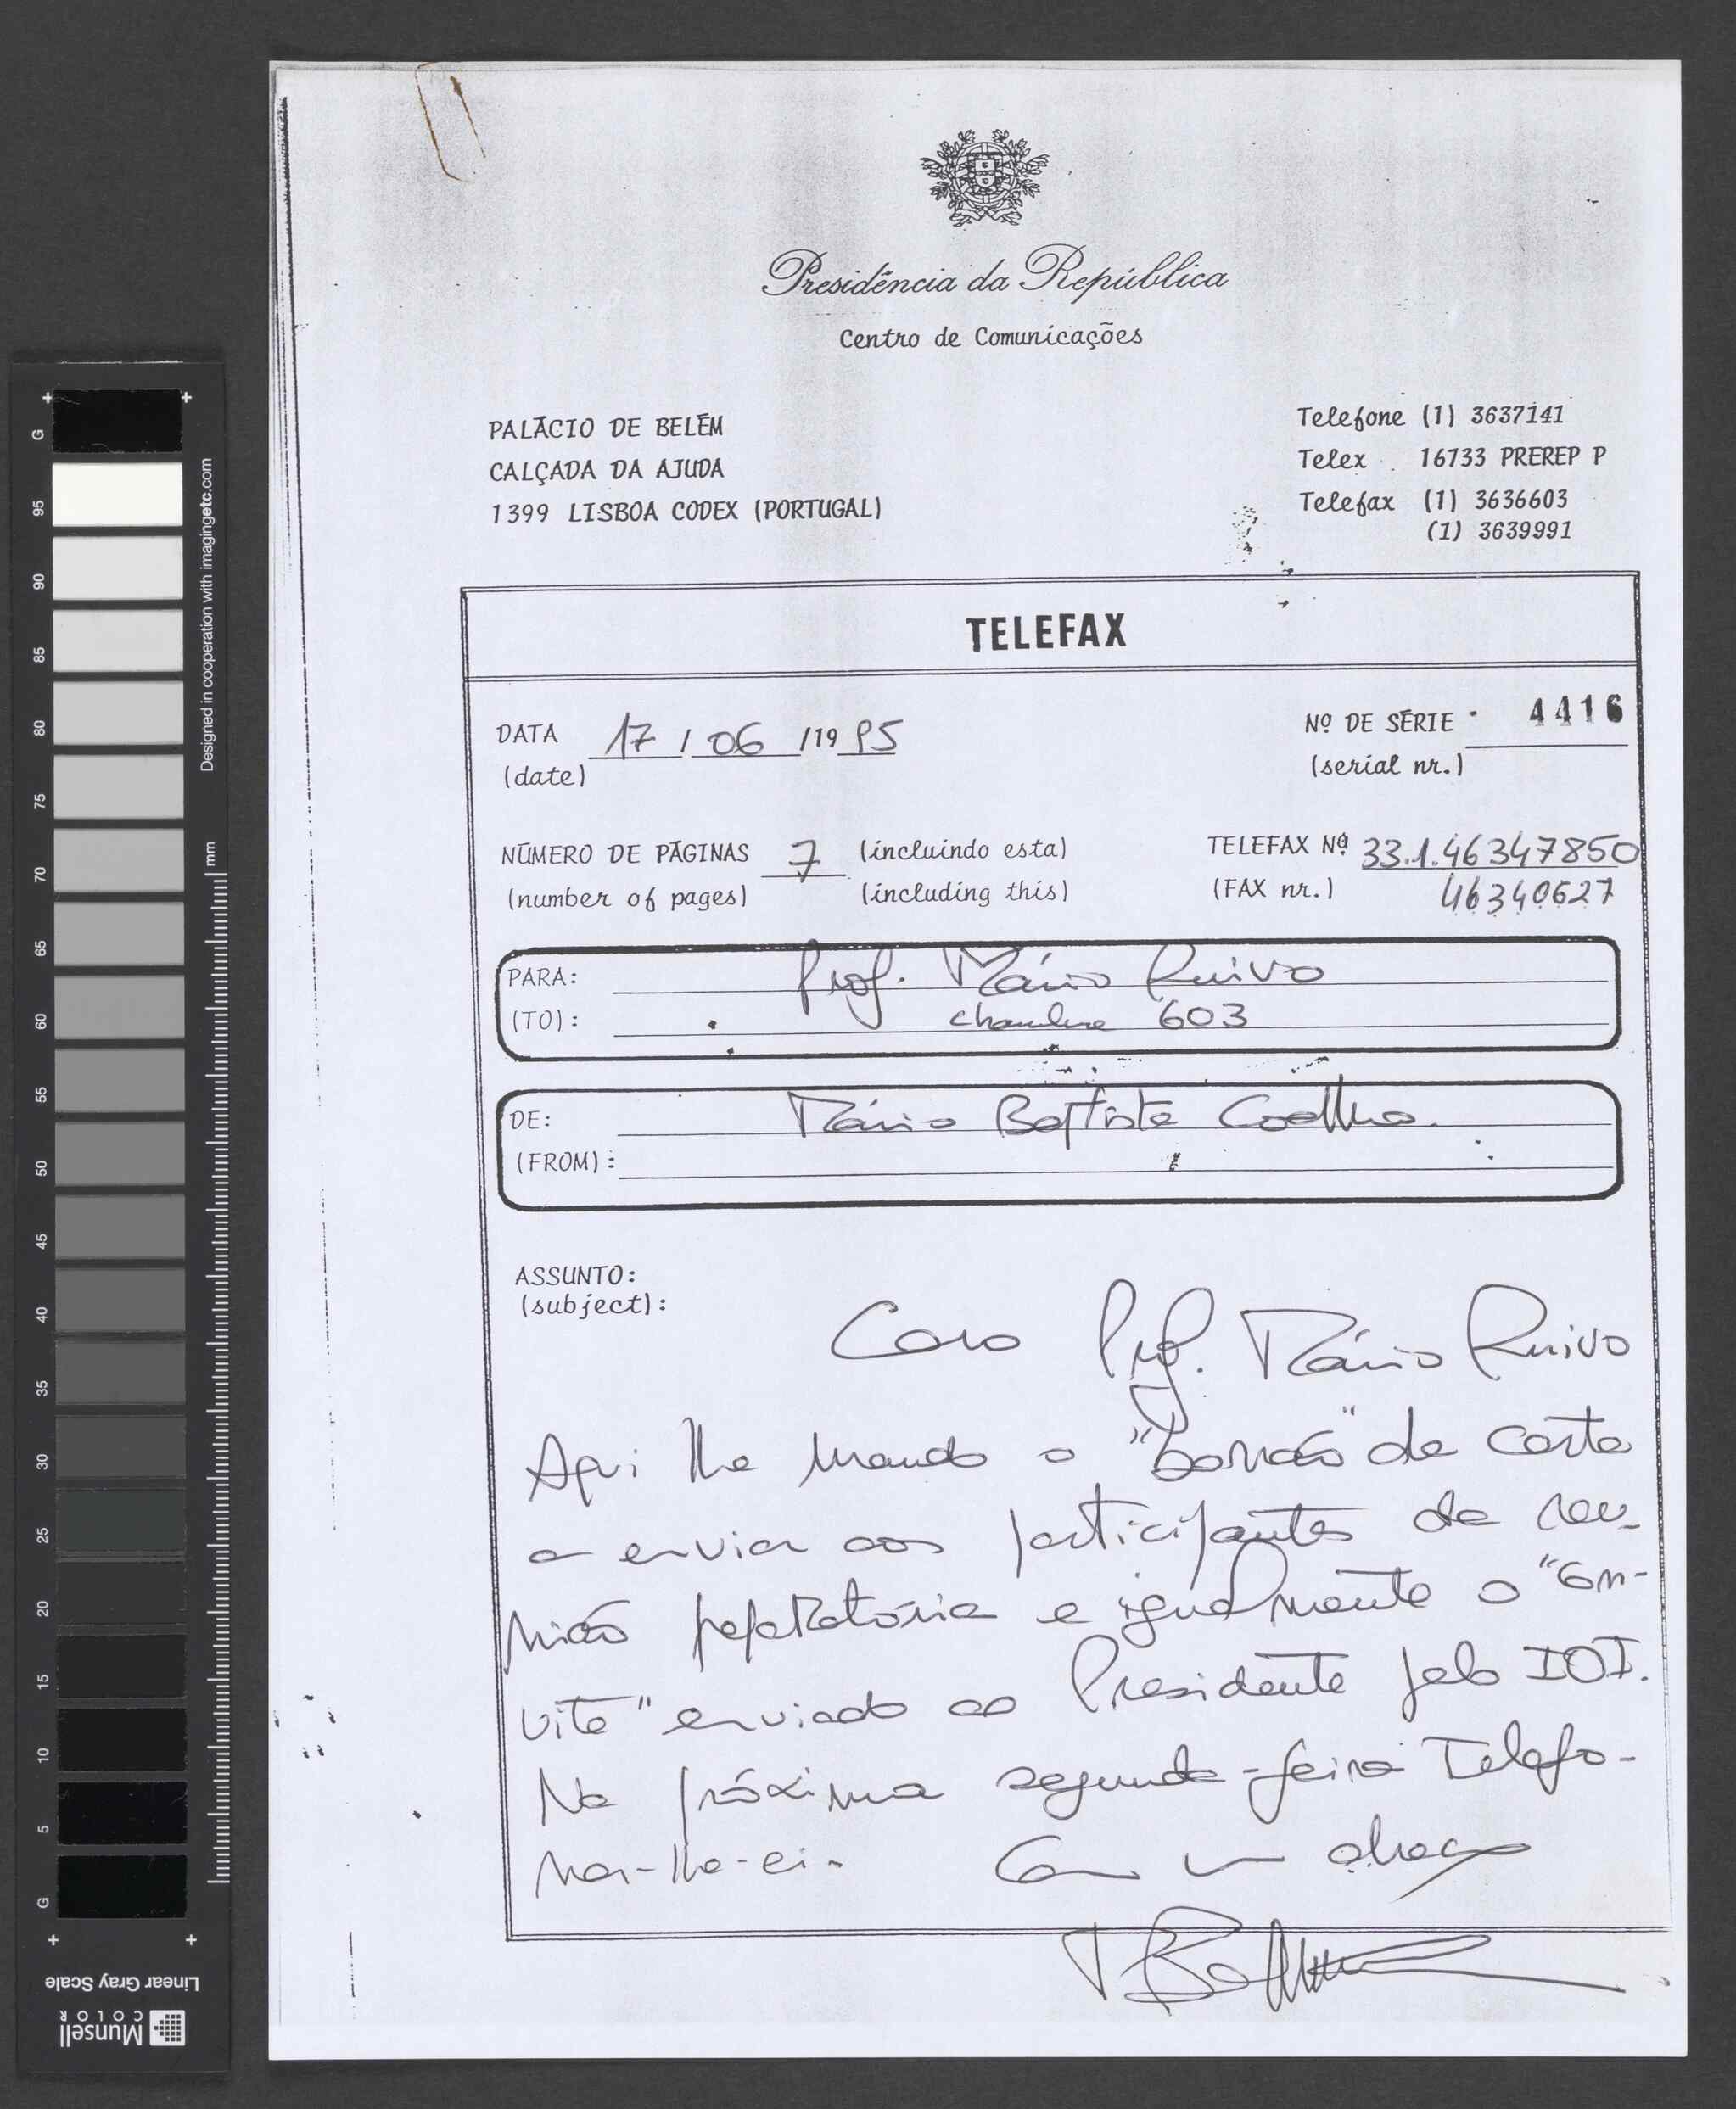 Presidência da República
Centro de Comunicações
PALÁCIO DE BELÉM
CALÇADA DA AJUDA
1399 LISBOA CODEX (PORTUGAL)
Telefone (1) 3637141
Telex 16733 PREREP P
Telefax (1) 3636603
(1) 3639991
TELEFAX
DATA 17 / 06 /19 95
(date)
Nº DE SÉRIE 4416
(serial nr.)
NÚMERO DE PÁGINAS 7 (incluindo esta)
(number of pages) (including this)
TELEFAX Nº 33.1.46347850
(FAX nr.) 46340627
PARA: Prof. Mário Ruivo
(TO): chambre 603
DE: Mário Baptista Coelho
(FROM):
ASSUNTO:
(subject):
Caro Prof. Mário Ruivo
Aqui lhe mando o "borrão" da carta
a enviar aos participantes da reu-
nião preparatória e igualmente o "con-
vite" enviado ao Presidente pelo IOI.
Na próxima segunda-feira telefo-
nar-lhe-ei.
Com um abraço
G 95 90 85 80 75 70 65 60 55 50 45 40 35 30 25 20 15 10 5 G
mm
Designed in cooperation with imagingetc.com
Linear Gray Scale
Munsell
COLOR